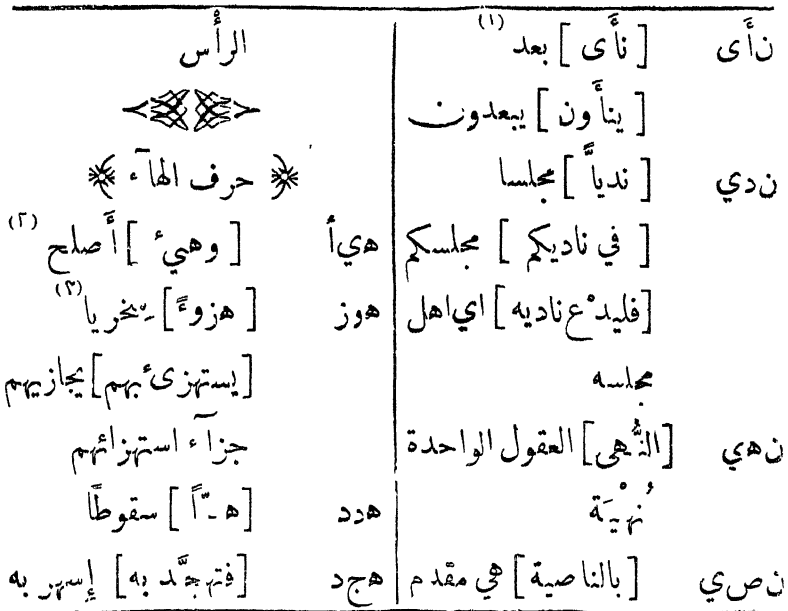 نأى [ نأَى ] بعد (١)
[ ينأَون ] يبعدون
ندي [ ندياًّ ] مجلسا
[ في ناديكم ] مجلسكم
[فليدْع ناديه] اي اهل
مجلسه
نهي [النُّهى] العقول الواحدة
نُهْيَة
نصي [بالناصية] هي مقدم
الرأْس
﴿ حرف الهآء ﴾
هيأ [ وهيءْ ] أَصلح (٢)
هوز [ هزوءًا] سِخريا (٣)
[يستهزىء بهم] يجازيهم
جزآء استهزائهم
هدد [هدًّا] سقوطًا
هجد [فتهجَّد به] إسهر به